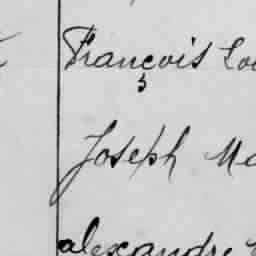 François Lou
Joseph Ma
alexandre